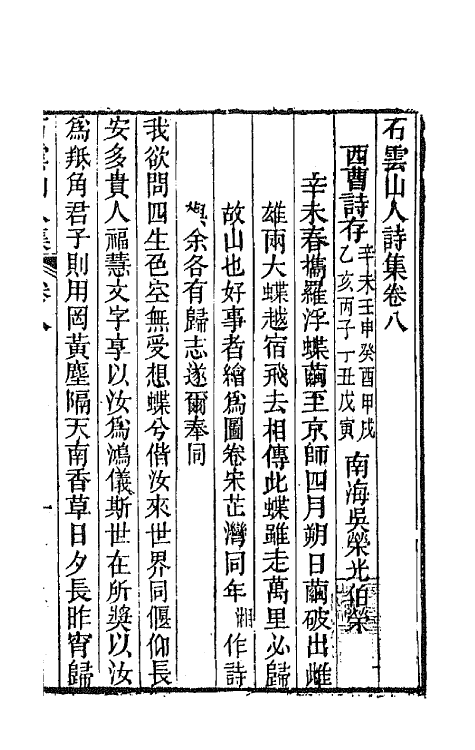 石雲山人詩集卷八
西曹詩存 辛未壬申癸酉甲戌 乙亥丙子丁丑戊寅 南海吳榮光伯榮
辛未春攜羅浮蝶繭至京師四月朔日繭破出雌
雄兩大蝶越宿飛去相傳此蝶雖走萬里必歸
故山也好事者繪爲圖卷宋芷灣同年湘作詩
與余各有歸志遂爾奉同
我欲問四生色空無受想蝶兮偕汝來世界同偃仰長
安多貴人福慧文字享以汝爲鴻儀斯世在所獎以汝
爲羝角君子則用罔黃塵隔天南香草日夕長昨宵歸
卷八
一